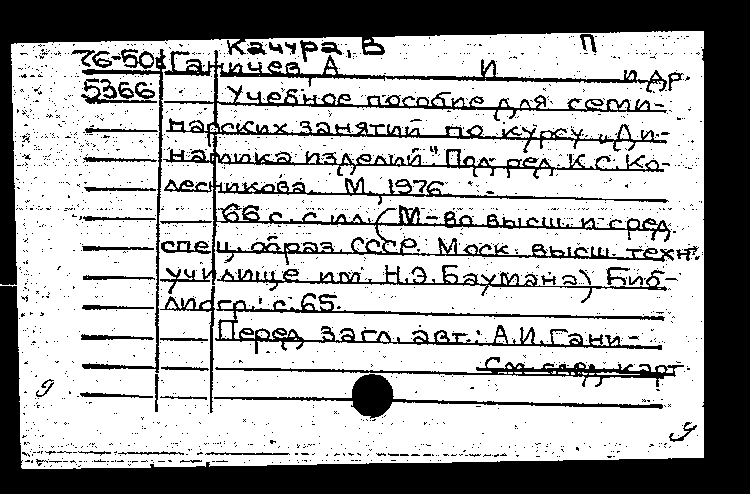 Качура, В П
76-50к Ганичев, А И и др.
5366 Учебное пособие для семи-
нарских занятий по курсу „Ди-
намика изделий" Под ред. К.С. Ко-
лесникова. М., 1976
66 с. с ил. (М-во высш. и сред.
спец. образ. СССР. Моск. высш. техн.
училище им. Н.Э. Баумана) Биб-
лиогр.: с. 65.
Перед загл. авт.: А.И. Гани-
См след. карт.